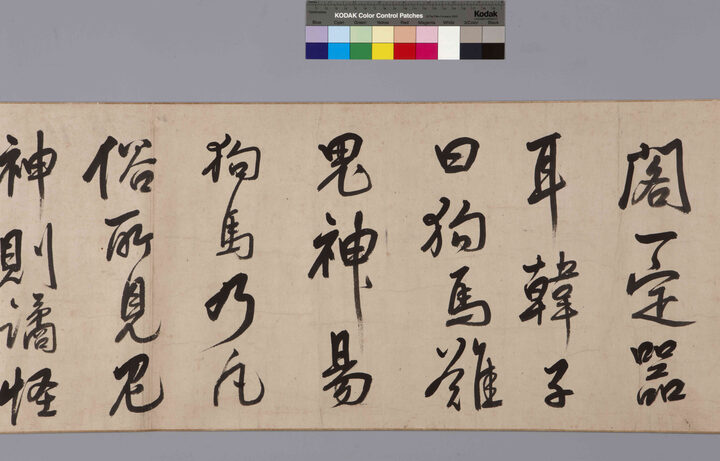 KODAK Color Control Patches
Kodak
Blue Cyan Green Yellow Red Magenta White 3/Color Black
閣一定器
耳韓子
曰狗馬難
鬼神易
狗馬乃凡
俗所見鬼
神則譎怪